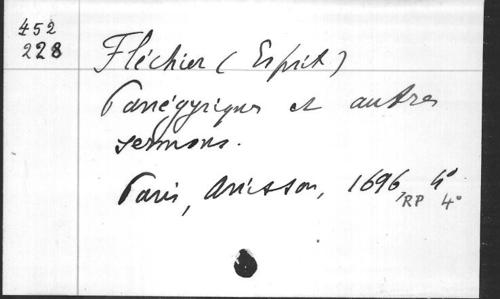 452
228
Fléchier (Esprit)
Panégyriques et autres
sermons.
Paris, Anisson, 1696, 4°
RP 4°